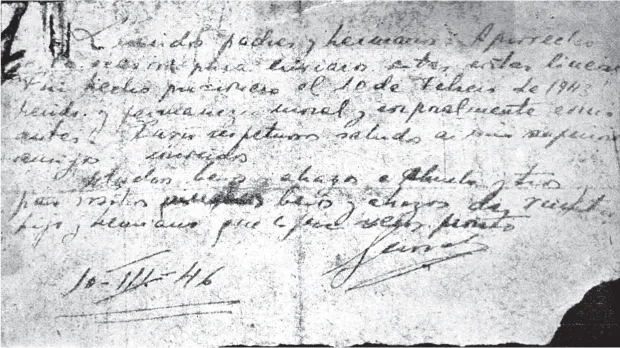 Queridos padres y hermanos: Aprovecho
la ocasion para enviaros estas lineas
Fui hecho prisionero el 10 de Febrero de 1943
herido y permanezco moral y corporalmente como
antes. Envio respetuosos saludos a mis superiores
amigos
saludos besos y abrazos a abuela y tios
para vosotros muchos besos y abrazos de vuestro
hijo y hermano que espera veros pronto
10-III-46